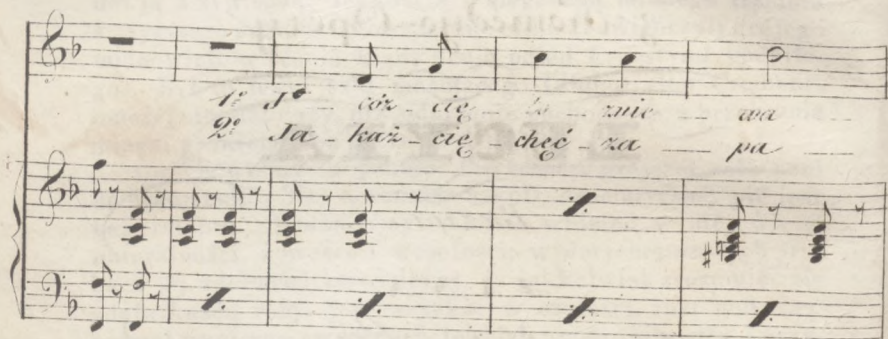 1º I cóż cię to znie wa
2º Ja_każ_cię_chęć_za pa